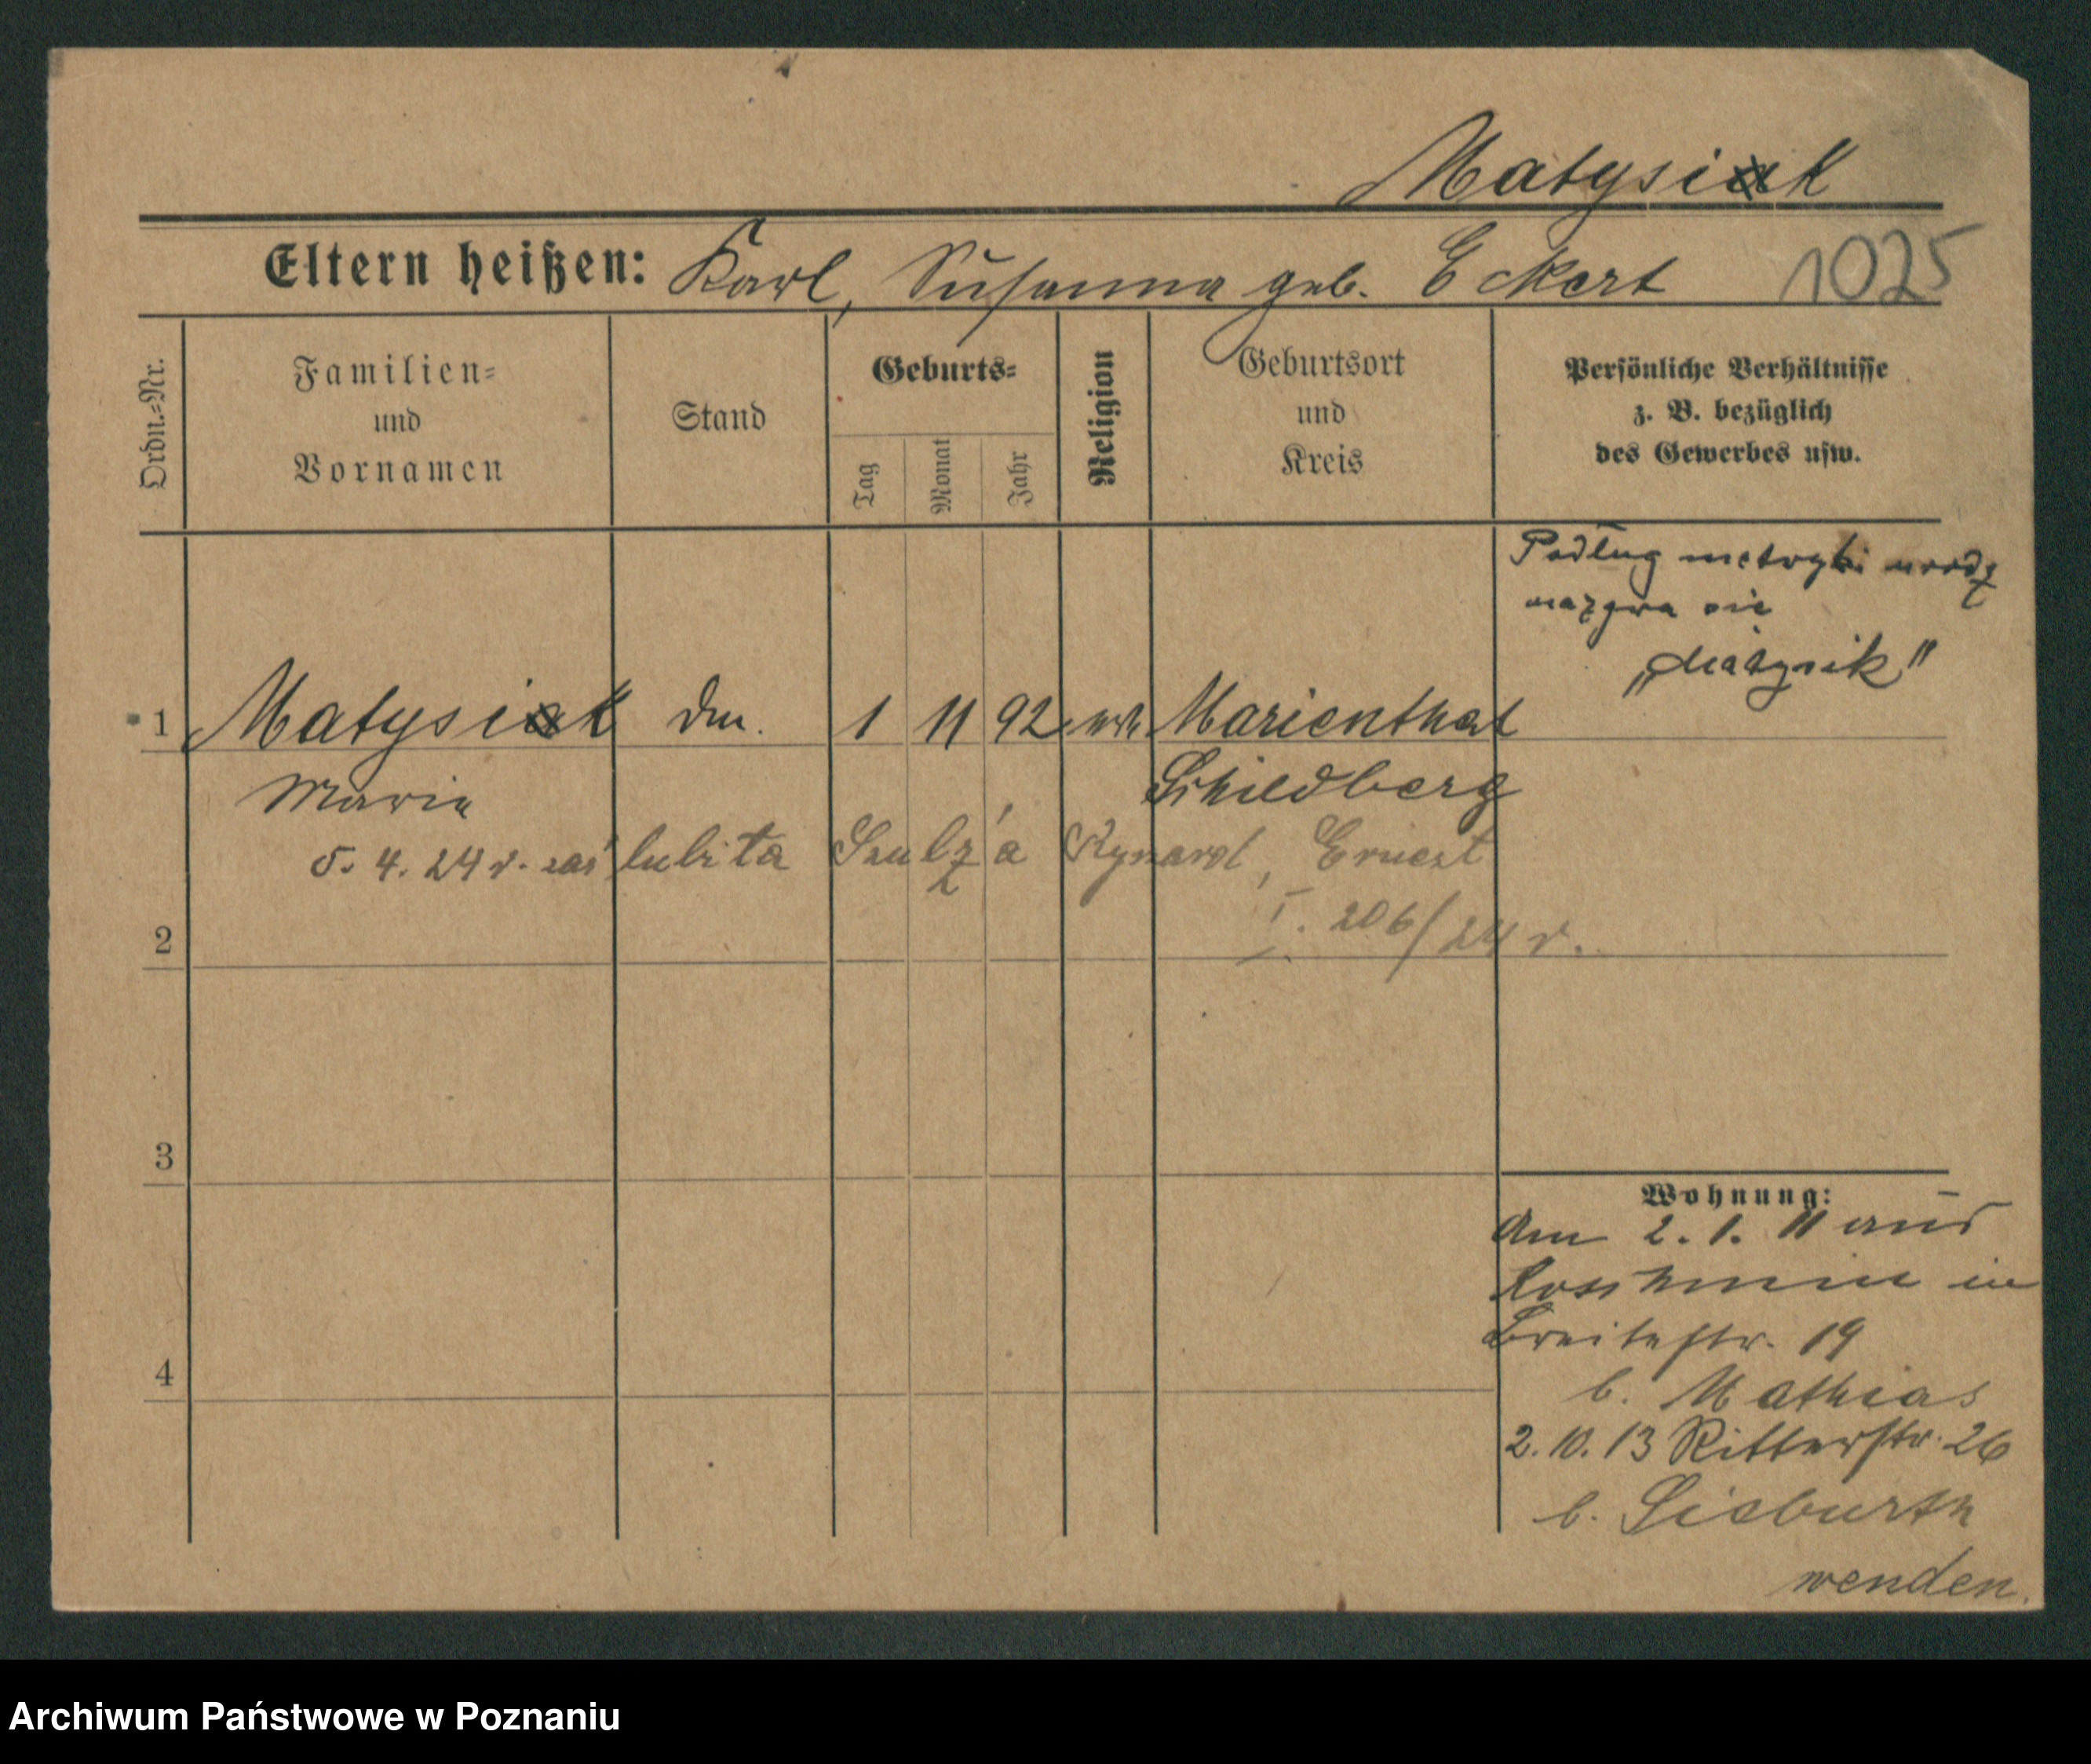 Matysiak
Eltern heißen: Karl, Susanna geb. Eckert 1025
Ordn.=Nr.
Familien= und Vornamen
Stand
Geburts=
Tag Monat Jahr
Religion
Geburtsort und Kreis
Persönliche Verhältnisse
z. B. bezüglich
des Gewerbes usw.
Podług metryki urodz
nazywa się
„Matysik"
1 Matysiak 1 11 92 Marienthal
Maria Schildberg
5. 4. 24 r. zaślubiła Szulza Rynard, Ernest
I. 206/24 r.
2
3
4
Wohnung:
Am 2. 1. 11 aus
Koschmin in
Breitestr. 19
b. Mathias
2. 10. 13 Ritterstr. 26
b. Sieburth
wenden.
Archiwum Państwowe w Poznaniu